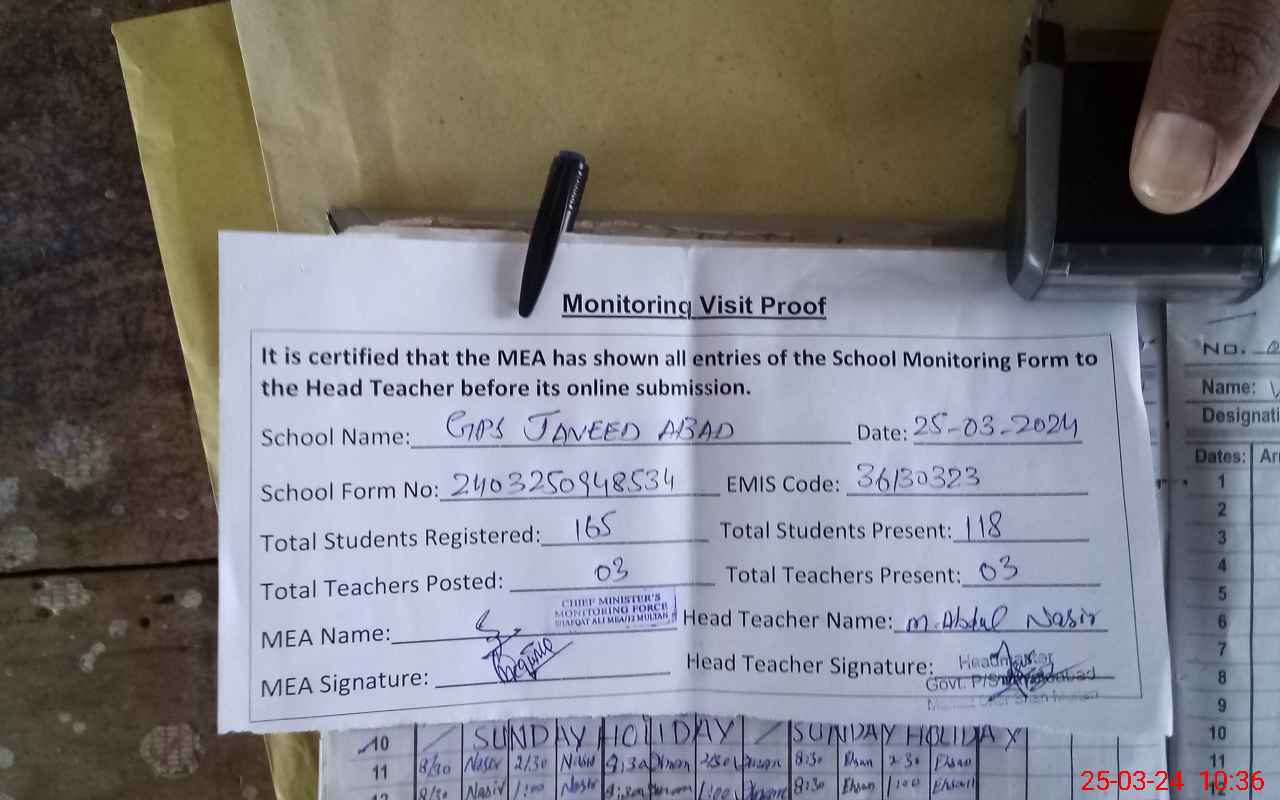 Monitoring Visit Proof
It is certified that the MEA has shown all entries of the School Monitoring Form to
the Head Teacher before its online submission.
School Name: GPS JAVEED ABAD Date: 25-03-2024
School Form No: 2403250948534 EMIS Code: 36130323
Total Students Registered: 165 Total Students Present: 118
Total Teachers Posted: 03 Total Teachers Present: 03
CHIEF MINISTER'S
MONITORING FORCE
SHAFQAT ALI MEA/12 MULTAN
MEA Name: Head Teacher Name: M. Abdul Nasir
MEA Signature: Head Teacher Signature:
Headmaster
Govt. P/S
No.
Name:
Designati
Dates: Ar
1
2
3
4
5
6
7
8
9
10
11
12
10 SUNDAY HOLIDAY SUNDAY HOLIDAY
11 8/30 Nasir 2/30 Nasir 8:30 2:30 8:30 Ehsan 2:30 Ehsan
12 8/30 Nasir 1:00 Nasir 8:30 1:00 8:30 Ehsan 1:00 Ehsan
25-03-24 10:36